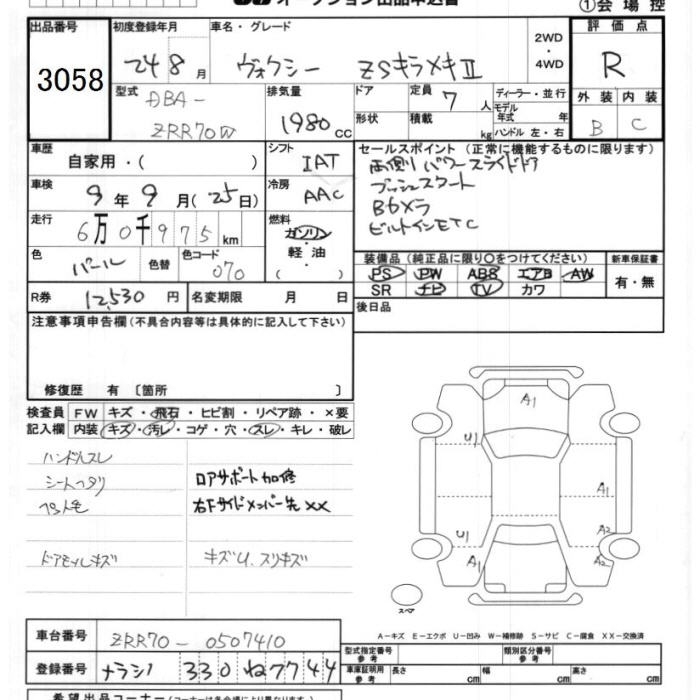 オークション出品申込書
①会場控
出品番号 3058
初度登録年月 24 8月
車名・グレード ヴォクシー ZSキラメキⅡ
2WD・4WD
評価点 R
外装 B 内装 C
型式 DBA-ZRR70W
排気量 1980cc
ドア 形状
定員 7人
積載 kg
ディーラー・並行
モデル年式 年
ハンドル 左・右
車歴 自家用・( )
シフト IAT
車検 9年9月(25日)
冷房 AAC
走行 6万0千975km
燃料 ガソリン・軽油・( )
色 パール 色替 色コード 070
R券 12,530円 名変期限 月 日
セールスポイント(正常に機能するものに限ります)
両側パワースライドドア
プッシュスタート
Bカメラ
ビルトインETC
装備品(純正品に限り○をつけてください)
PS PW ABS エアB AW
SR ナビ TV カワ
新車保証書 有・無
後日品
注意事項申告欄(不具合内容等は具体的に記入して下さい)
修復歴 有〔箇所 〕
検査員記入欄
FW キズ・飛石・ヒビ割・リペア跡・×要
内装 キズ・汚レ・コゲ・穴・スレ・キレ・破レ
ハンドルスレ
シートヘタリ
ロアサポート加修
右Fサイドメンバー先××
ドアモールキズ
キズU、スリキズ
A1
U1
A1
U1
A2
A1
A2
スペア
A-キズ E-エクボ U-凹み W-補修跡 S-サビ C-腐食 XX-交換済
車台番号 ZRR70-0507410
登録番号 ナラシノ 330 ね7744
型式指定番号 参考
類別区分番号 参考
車庫証明用参考 長さ cm 幅 cm 高さ cm
希望出品コーナー